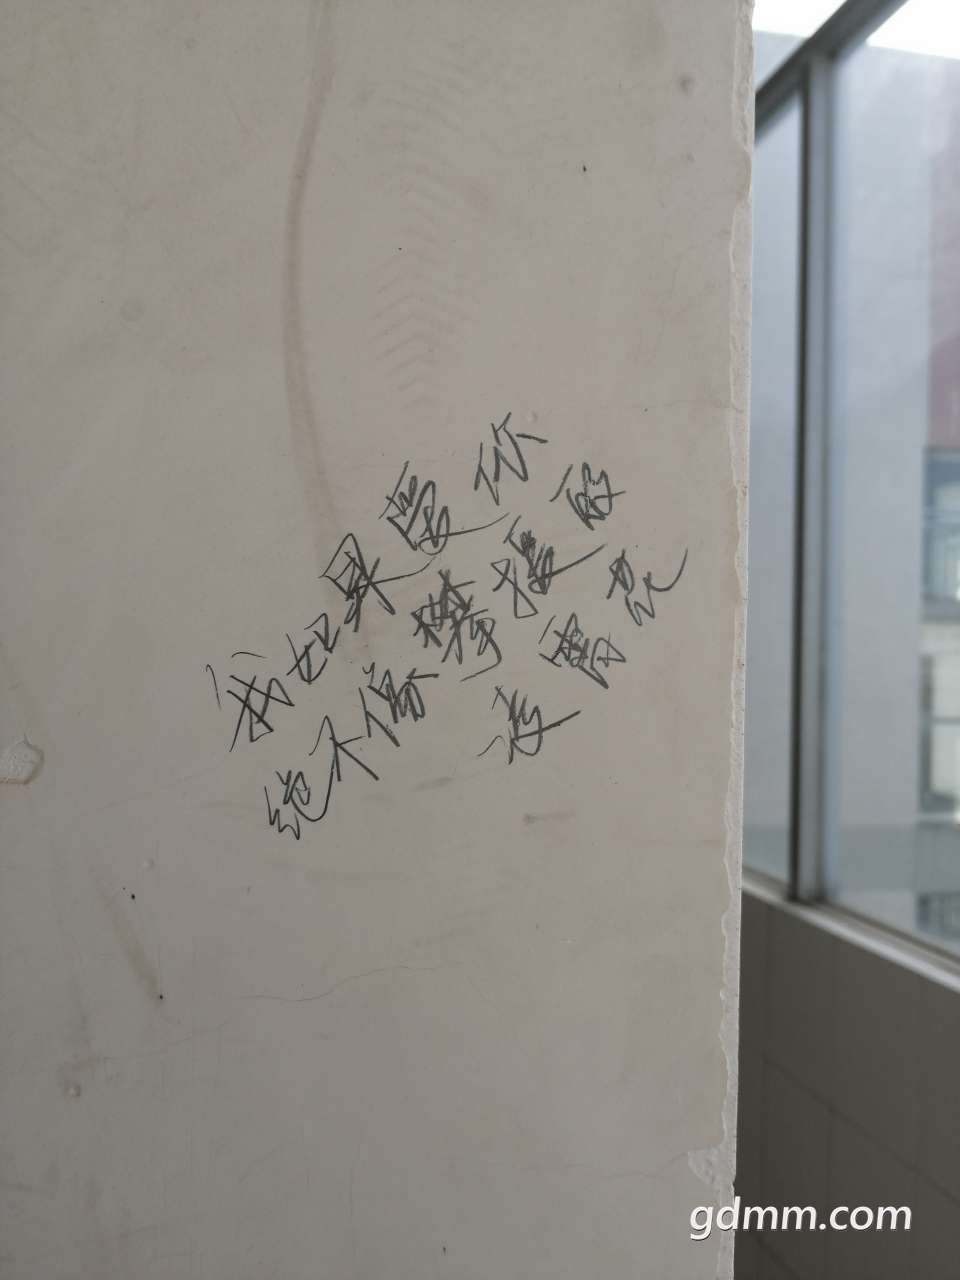 我如果爱你
绝不像攀援的
凌霄花
gdmm.com